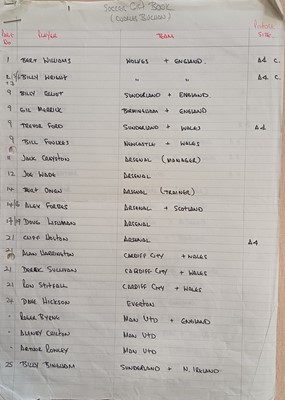 SOCCER CITY BOOK
(CHARLES BUCHAN)
PAGE No PLAYER TEAM PICTURE SIZE.
1 BERT WILLIAMS WOLVES + ENGLAND. A4 C.
BILLY WRIGHT " " A4 C.
9 BILLY ELLIOT SUNDERLAND + ENGLAND.
9 GIL MERRICK BIRMINGHAM + ENGLAND
9 TREVOR FORD SUNDERLAND + WALES A4
9 BILL FOULKES NEWCASTLE + WALES
11 JACK CRAYSTON ARSENAL (MANAGER)
12 JOE WADE ARSENAL
14 BERT OWEN ARSENAL (TRAINER)
14/16 ALEX FORBES ARSENAL + SCOTLAND
17/19 DOUG LISHMAN ARSENAL
21 CLIFF HOLTON ARSENAL A4
21 ALAN HARRINGTON CARDIFF CITY + WALES
21 DEREK SULLIVAN CARDIFF CITY + WALES
21 RON STITFALL CARDIFF CITY + WALES
24 DAVE HICKSON EVERTON
- ROGER BYRNE MAN UTD + ENGLAND
- ALLENBY CHILTON MAN UTD
- ARTHUR ROWLEY MAN UTD
25 BILLY BINGHAM SUNDERLAND + N. IRELAND